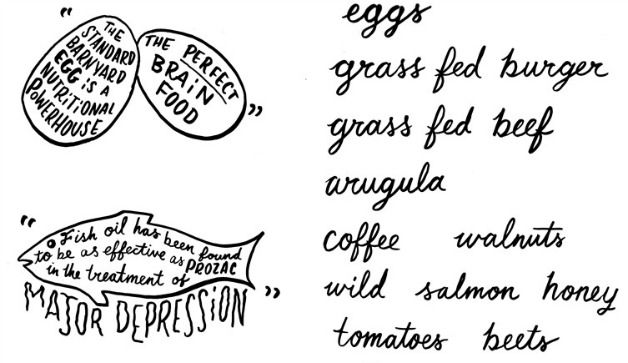 “
THE
STANDARD
BARNYARD
EGG iS A
NUTRITIONAL
POWERHOUSE
THE PERFECT
BRAiN
FOOD
”
“
Fish oil has been found
to be as effective as PROZAC
in the treatment of
MAJOR DEPRESSiON
”
eggs
grass fed burger
grass fed beef
arugula
coffee walnuts
wild salmon honey
tomatoes beets